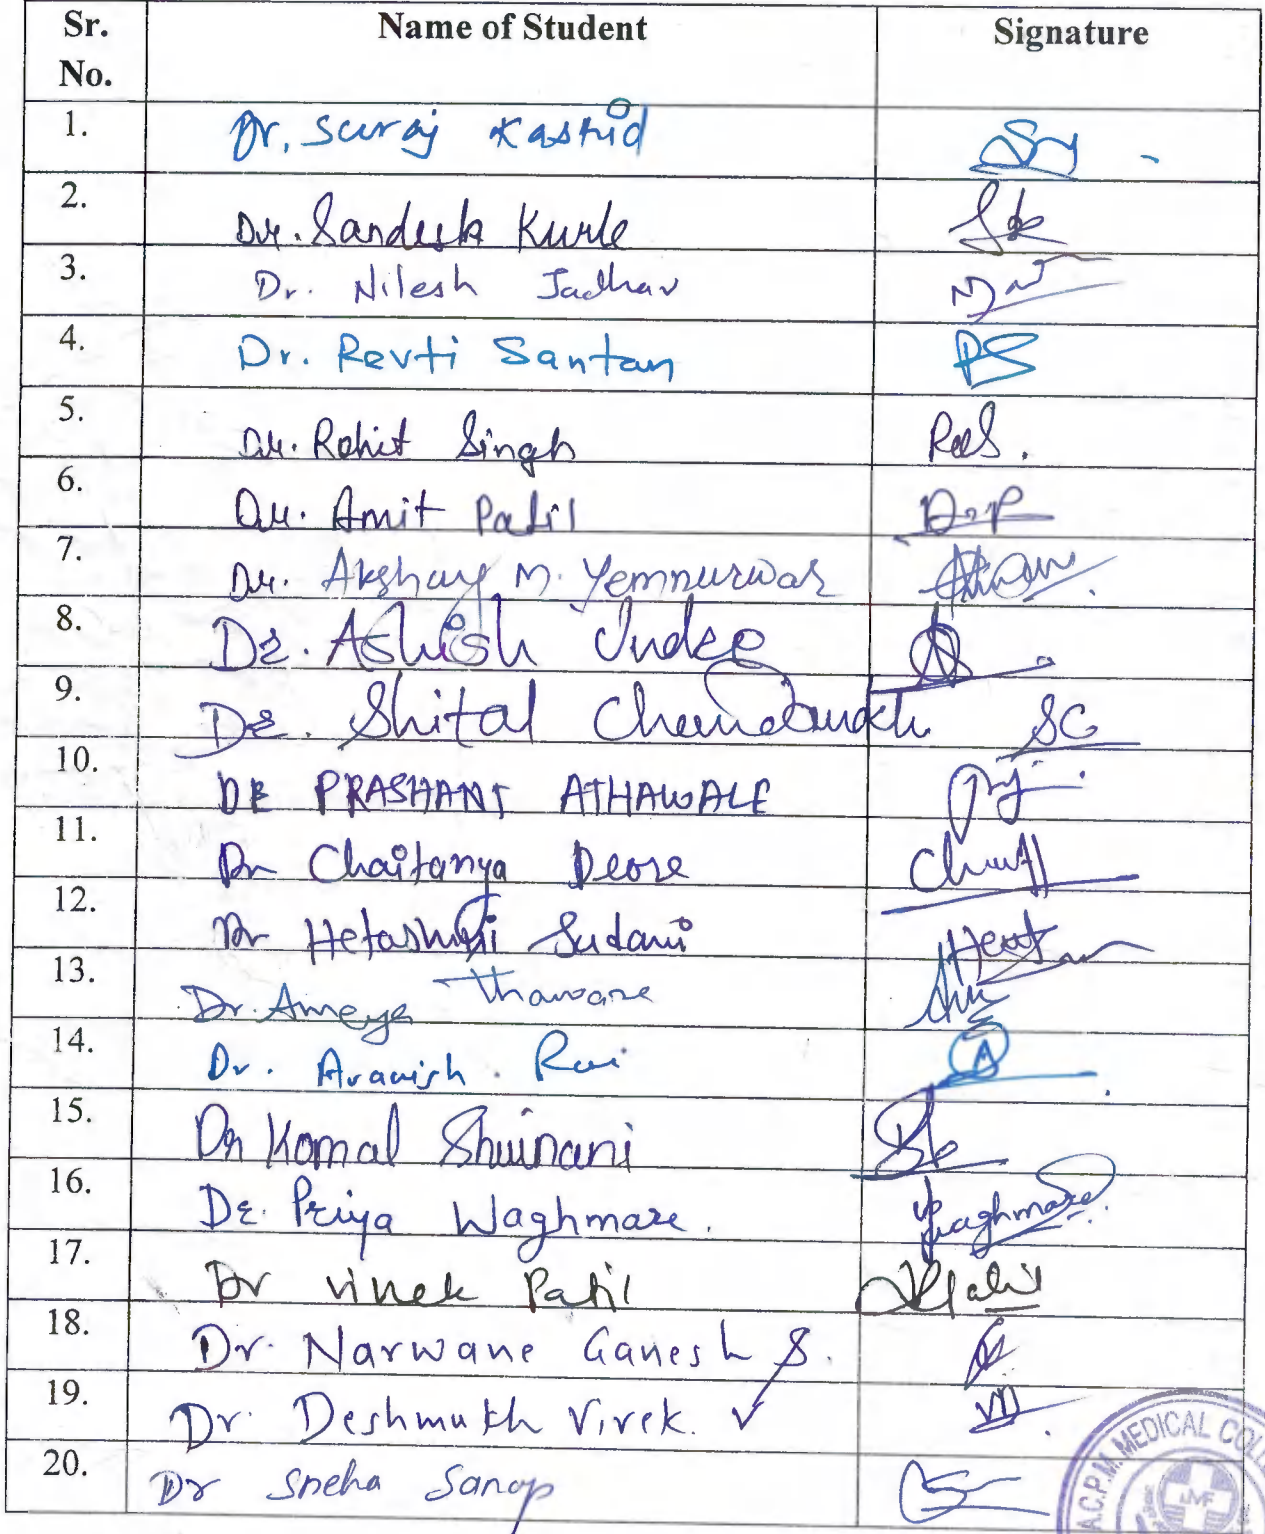 Sr. No. Name of Student Signature
1. Dr. Suraj Kashid
2. Dr. Sandesh Kurle
3. Dr. Nilesh Jadhav
4. Dr. Revti Santan RS
5. Dr. Rohit Singh
6. Dr. Amit Patil
7. Dr. Akshay M. Yemnurwar
8. Dr. Ashish Indre
9. Dr. Shital SC
10. DR PRASHANT ATHAWALE
11. Dr Chaitanya Deore
12. Dr Sudani
13. Dr. Ameya Thaware
14. Dr. Rai
15. Dr Komal
16. Dr. Priya Waghmare. Waghmare
17. Dr Vivek Patil
18. Dr. Narwane Ganesh S.
19. Dr. Deshmukh Vivek.
20. Dr Sneha Sanap
A.C.P.M. MEDICAL